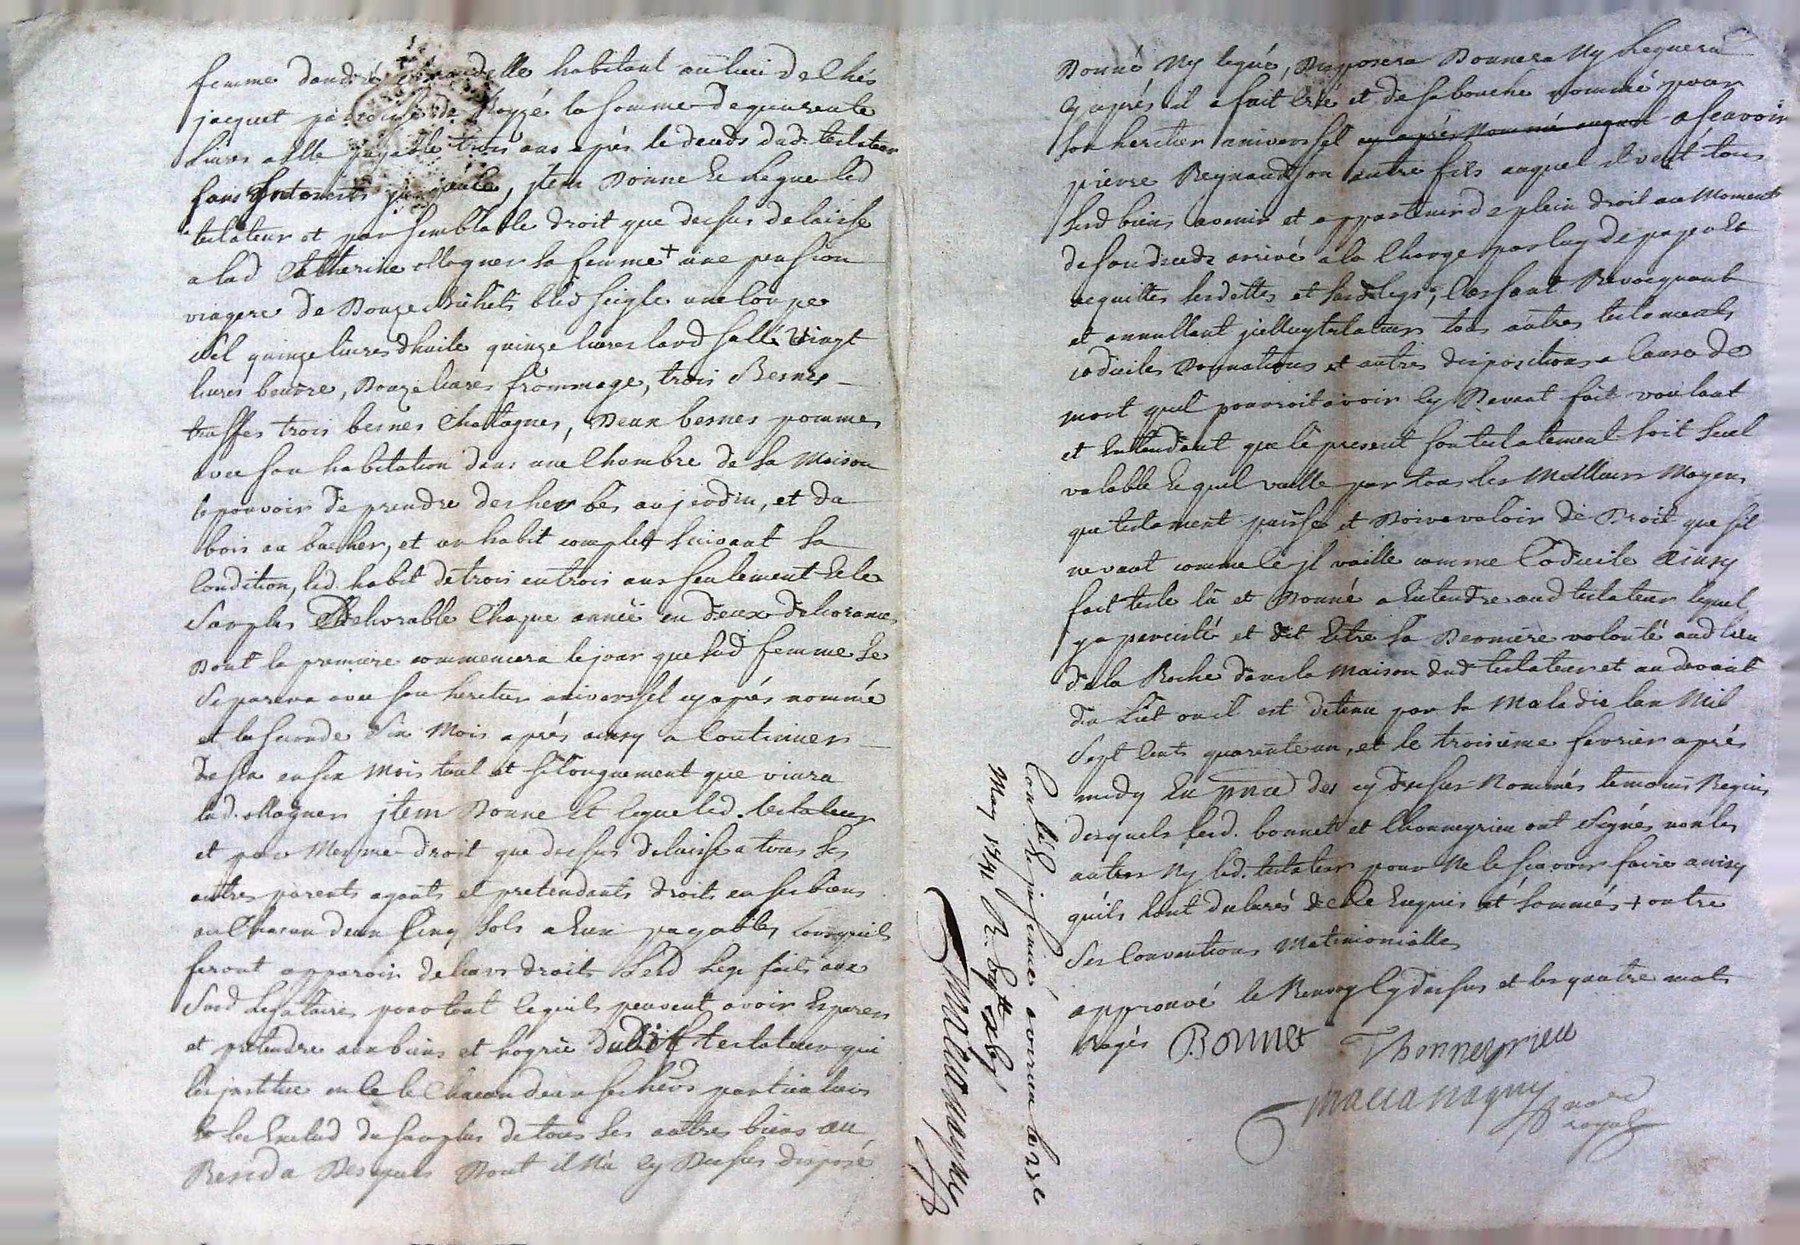 femme dandré habitant au lieu de chés
jacquet parroisse de la somme de quarente
livres a elle payable trois ans après le deceds dud. testateur
sans jnterests jusques, jtem Donne Et Legue led
testateur et par semblable droit que dessus delaisse
a lad Catherine Magner sa femme + une pension
viagere de Douze Bichets bled seigle une coupe
sel quinze livres dhuile quinze livres lard sallé vingt
livres beurre, Douze livres frommage, trois Besnes
truffes trois besnes Chatagnes, Deux besnes pommes
avec son habitation dans une Chambre de sa Maison
le pouvoir de prendre des herbes au jardin, et du
bois au bucher, et un habit complet suivant sa
Condition, led. habit de trois en trois ans seulement Et le
Surplus Deslivrable Chaque année en deux deslivrances
Dont la premiere commencera le jour que lad femme se
Separera avec son heritier universsel cy après nommé
et la seconde Six Mois après ainsy a Continuer
de six en six Mois tant et si longuement que vivra
lad. Magner jtem Donne Et legue led. testateur
et par Mesme droit que dessus delaisse a tous ses
autres parents ayants et pretendants droit en ses biens
au Chacun deux Cinq sols a Eux payables lorsquils
feront apparoir de leurs droits Lesd Legs faits aux
Susd Legataires pour tout ce quils peuvent avoir Esperer
et pretendre aux biens et hoyrie Dudit testateur qui
les jnstitue en ce le Chacun deux ses heors particuliers
Et les Exclud du surplus de tous ses autres biens au
Residu Desquels Dont il N'a Cy Dessus disposé
Donné Ny legué, Disposera Donnera Ny Leguera
Cy après il a fait Créé et de sa bouche nommé pour
son heritier universsel cy après Nommé auquel a scavoir
pierre Reynaud son autre fils auquel il veut tous
sesd biens avenir et appartenir de plein droit au Moment
de son deceds arrivé a la Charge par luy de payer Et
acquitter ses dettes et susd legs, Cassant Revocquant
et annullant jcelluy testateur tous autres testaments
codiciles Donnations et autres dispositions a Cause de
mort quil pourroit avoir Cy Devant fait voulant
et Entendant que le present son testatement soit seul
valable Lequel vaille par tous les Meilleurs Moyens
que testament puisse et Doive valoir de Droit que sil
ne vaut comme ce jl vaille comme Codicile Ainsy
fait testé lû et Donné a Entendre aud testateur lequel
y a percisté et dit Estre sa Derniere volonté aud lieu
de la Roche dans la Maison dud testateur et au devant
du Lict ou il est detenu par sa Maladie lan Mil
Sept Cents quarente un, et le troisieme fevrier après
midy En pnce des cy dessus Nommés temoins Requis
desquels lesd. bonnet et thonneyrieu ont Signés non les
autres Ny led. testateur pour Ne le scavoir faire ainsy
quils L'ont declarés de ce Enquis et sommés + outre
Ses Conventions Matrimonialles
approuvé le Renvoy Cy dessus et les quatre mots
rayés Bonnet Thonneyrieu
Maccanagny
nore
royal
May 1741 R.